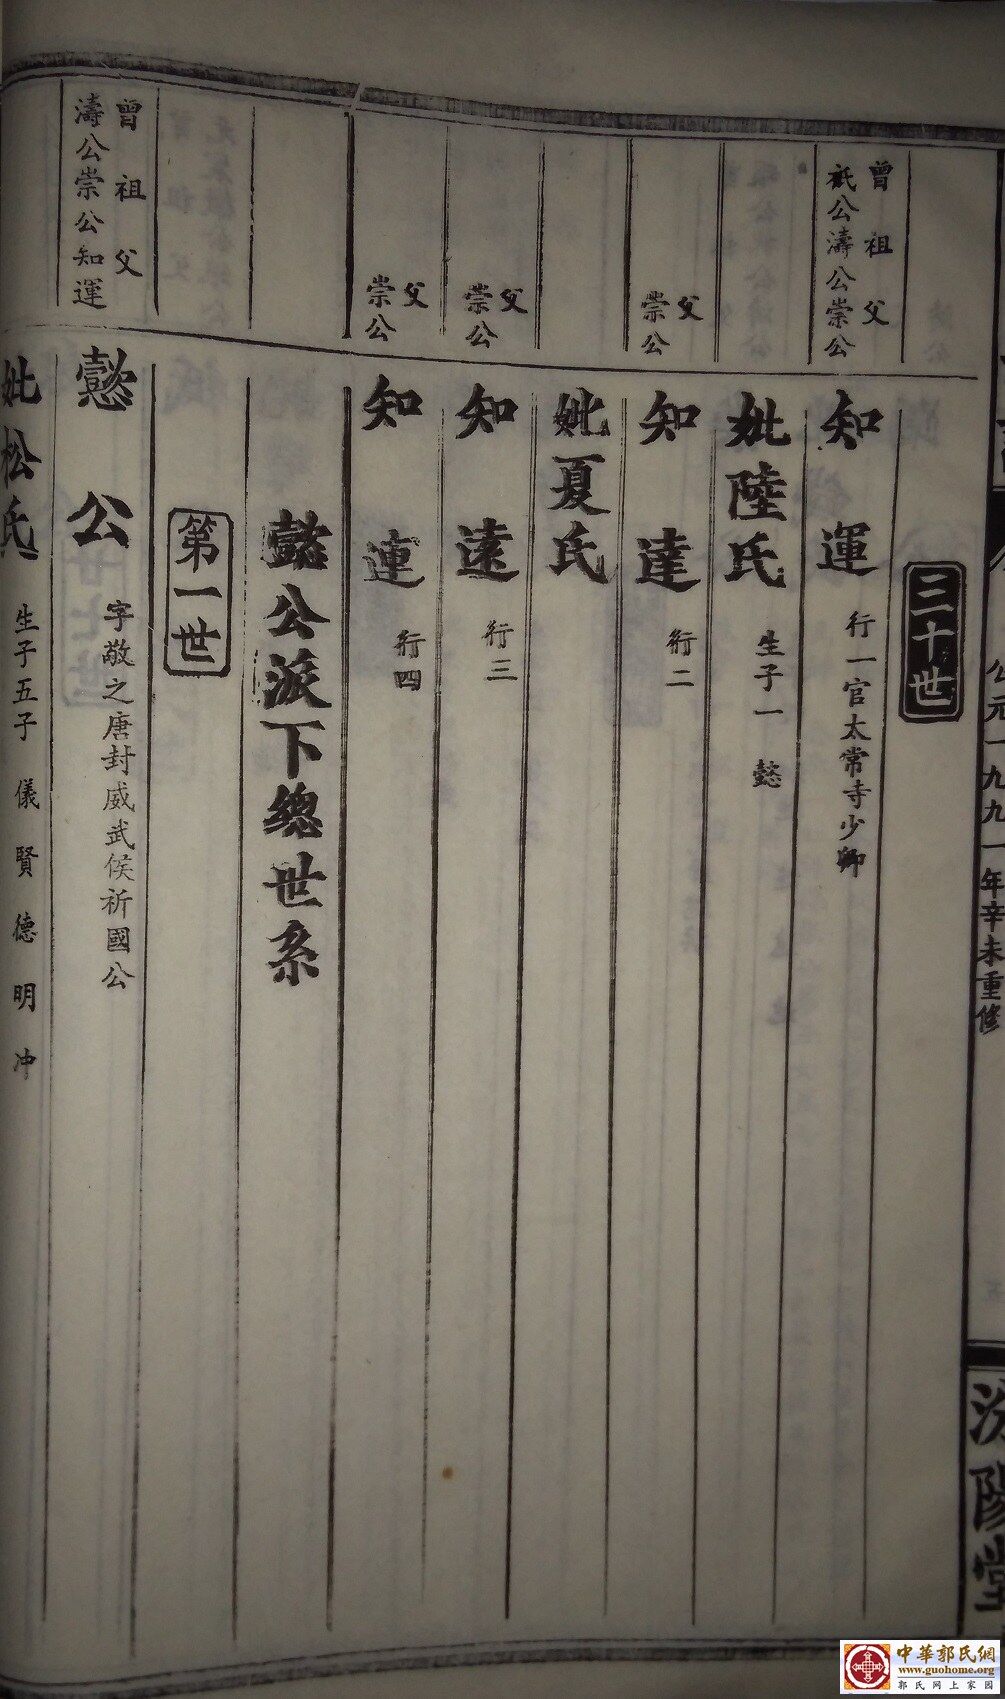 公元一九九一年辛未重修
汾陽堂
二十世
曾祖父
祇公濤公崇公
知運
行一官太常寺少卿
妣陸氏
生子一 懿
父
崇公
知達
行二
妣夏氏
父
崇公
知遠
行三
父
崇公
知連
行四
懿公派下總世系
第一世
曾祖父
濤公崇公知運
懿公
字敬之唐封威武侯祈國公
妣松氏
生子五子 儀 賢 德 明 冲
中華郭氏網
www.guohome.org
郭氏网上家园